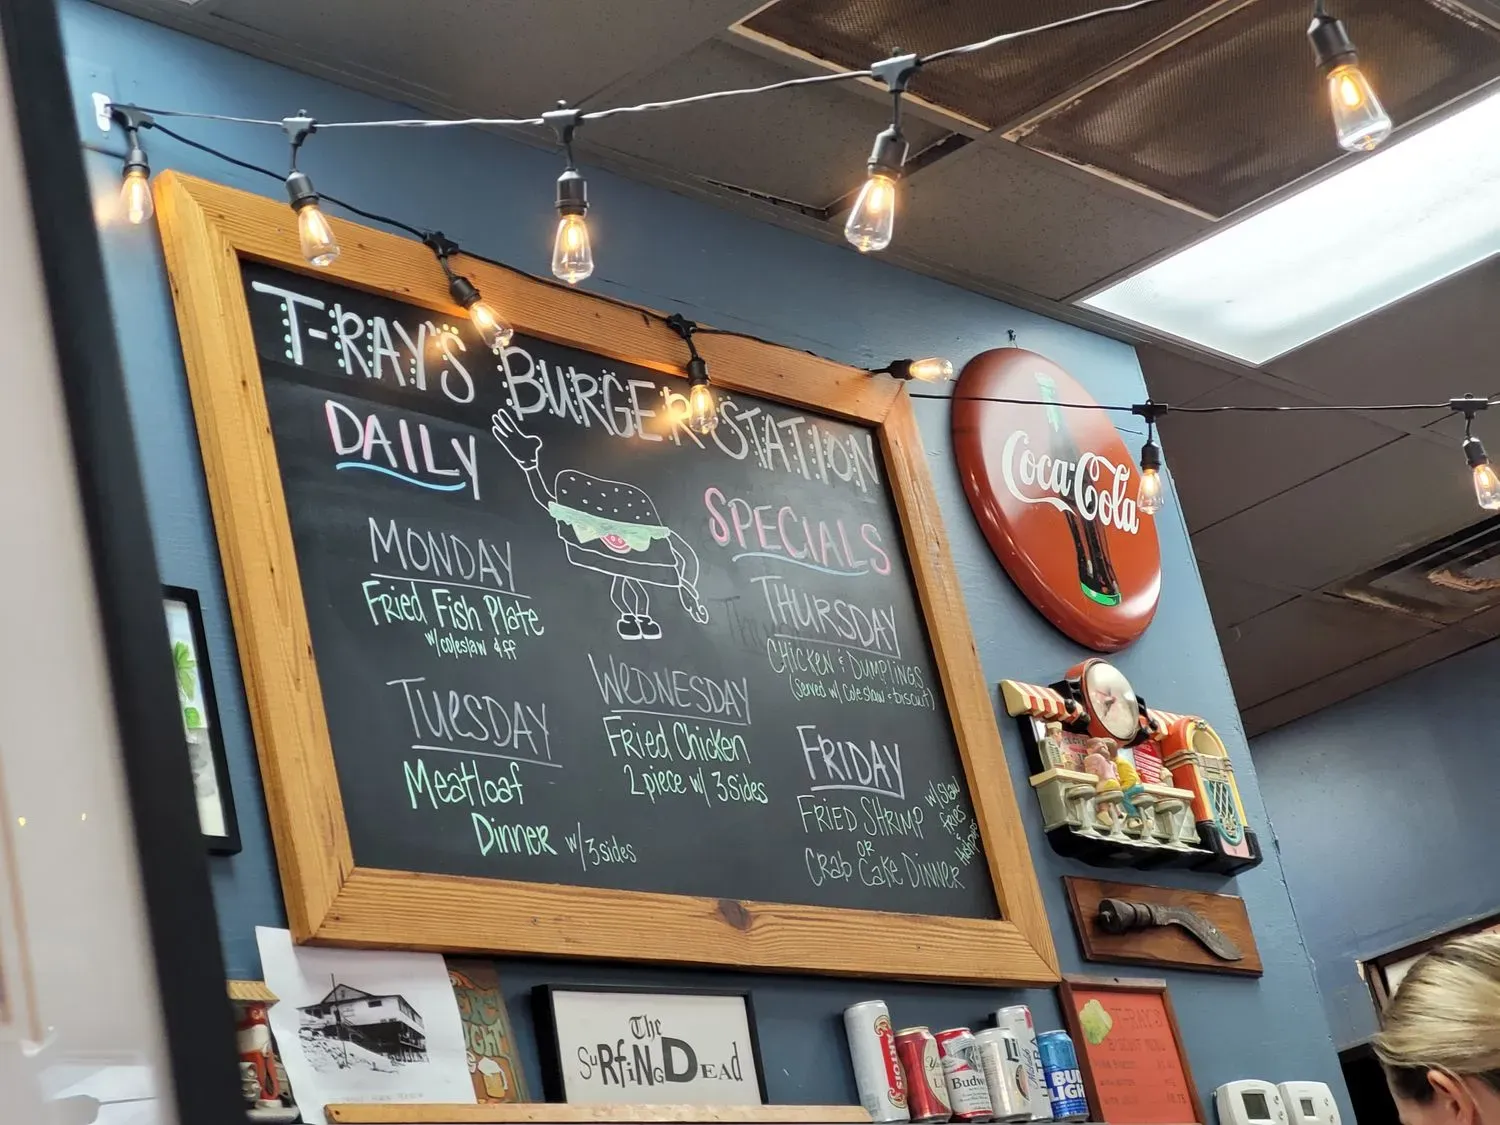 T-RAY'S BURGER STATION
DAILY
SPECIALS
MONDAY
Fried Fish Plate
w/coleslaw & ff
TUESDAY
Meatloaf
Dinner w/3sides
WEDNESDAY
Fried Chicken
2 piece w/ 3sides
THURSDAY
CHICKEN & DUMPLINGS
(Served w/ Coleslaw & Biscuit)
FRIDAY
FRIED SHRIMP
OR
CRAB CAKE DINNER
w/slaw
fries
Coca-Cola
The
SuRfiNG DEAD
ARTOIS
Budw
Li
ULTRA
BUD
LIGHT
T-RAY'S